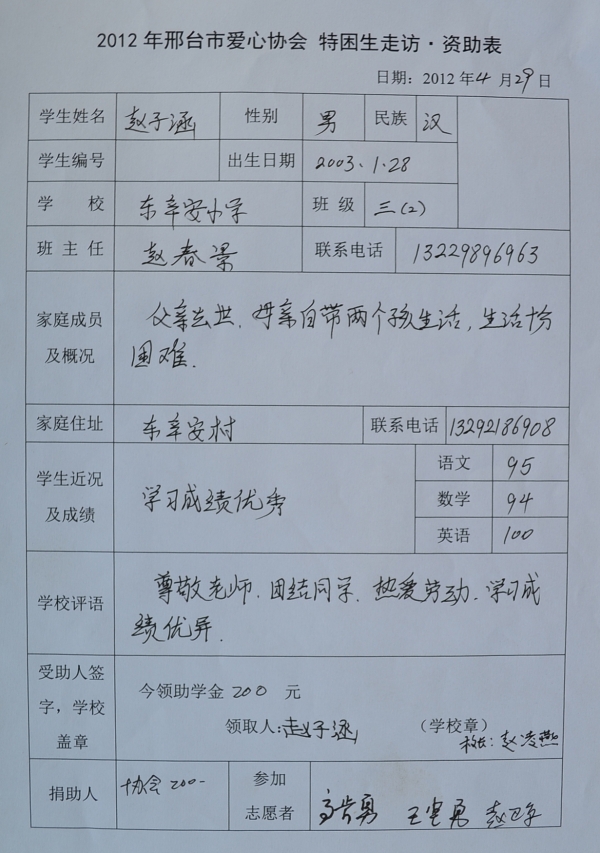 2012年邢台市爱心协会 特困生走访·资助表
日期：2012年4月29日
学生姓名 赵子涵 性别 男 民族 汉
学生编号 出生日期 2003.1.28
学 校 东辛安小学 班 级 三(2)
班 主 任 赵春景 联系电话 13229896963
家庭成员 父亲去世.母亲自带两个孩生活,生活十分
及概况 困难.
家庭住址 东辛安村 联系电话 13292186908
学生近况 学习成绩优秀 语文 95
及成绩 数学 94
英语 100
学校评语 尊敬老师.团结同学.热爱劳动.学习成
绩优异.
受助人签 今领助学金 200 元
字，学校 领取人:赵子涵 （学校章）
盖章 校长:赵凌燕
捐助人 协会 200- 参加
志愿者 王 勇 赵卫